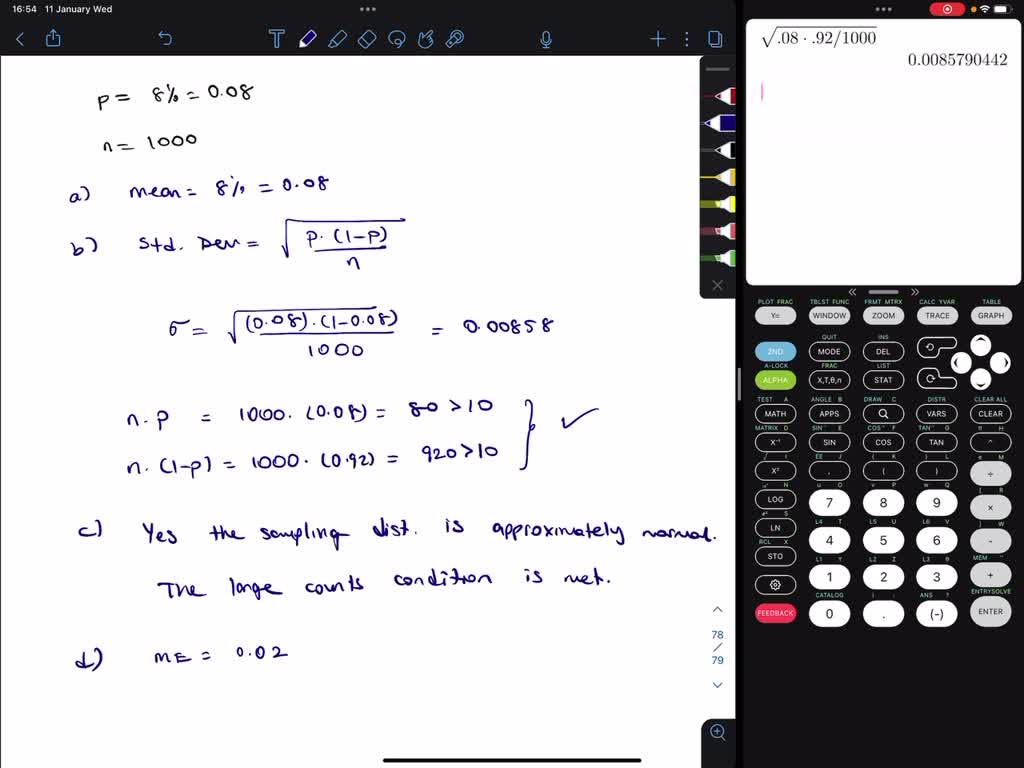 16:54 11 January Wed
p = 8% = 0.08
n = 1000
a) mean = 8% = 0.08
b) Std. Dev = √(p·(1-p)/n)
σ = √((0.08)·(1-0.08)/1000) = 0.00858
n·p = 1000·(0.08) = 80 > 10
n·(1-p) = 1000·(0.92) = 920 > 10
c) Yes the sampling dist. is approximately normal.
The large counts condition is met.
d) ME = 0.02
78
/
79
√.08 · .92/1000
0.0085790442
PLOT FRAC TBLST FUNC FRMT MTRX CALC YVAR TABLE
Y= WINDOW ZOOM TRACE GRAPH
QUIT INS
2ND MODE DEL
A-LOCK FRAC LIST
ALPHA X,T,θ,n STAT
TEST A ANGLE B DRAW C DISTR CLEAR ALL
MATH APPS VARS CLEAR
MATRIX D SIN⁻¹ E COS⁻¹ F TAN⁻¹ G π H
X⁻¹ SIN COS TAN ^
√ I EE J { K } L e M
X² , ( ) ÷
N u O v P w Q [ R
LOG 7 8 9 ×
S L4 T L5 U L6 V ] W
LN 4 5 6 -
RCL X L1 Y L2 Z L3 θ MEM "
STO 1 2 3 +
CATALOG i : ANS ? ENTRYSOLVE
FEEDBACK 0 . (-) ENTER